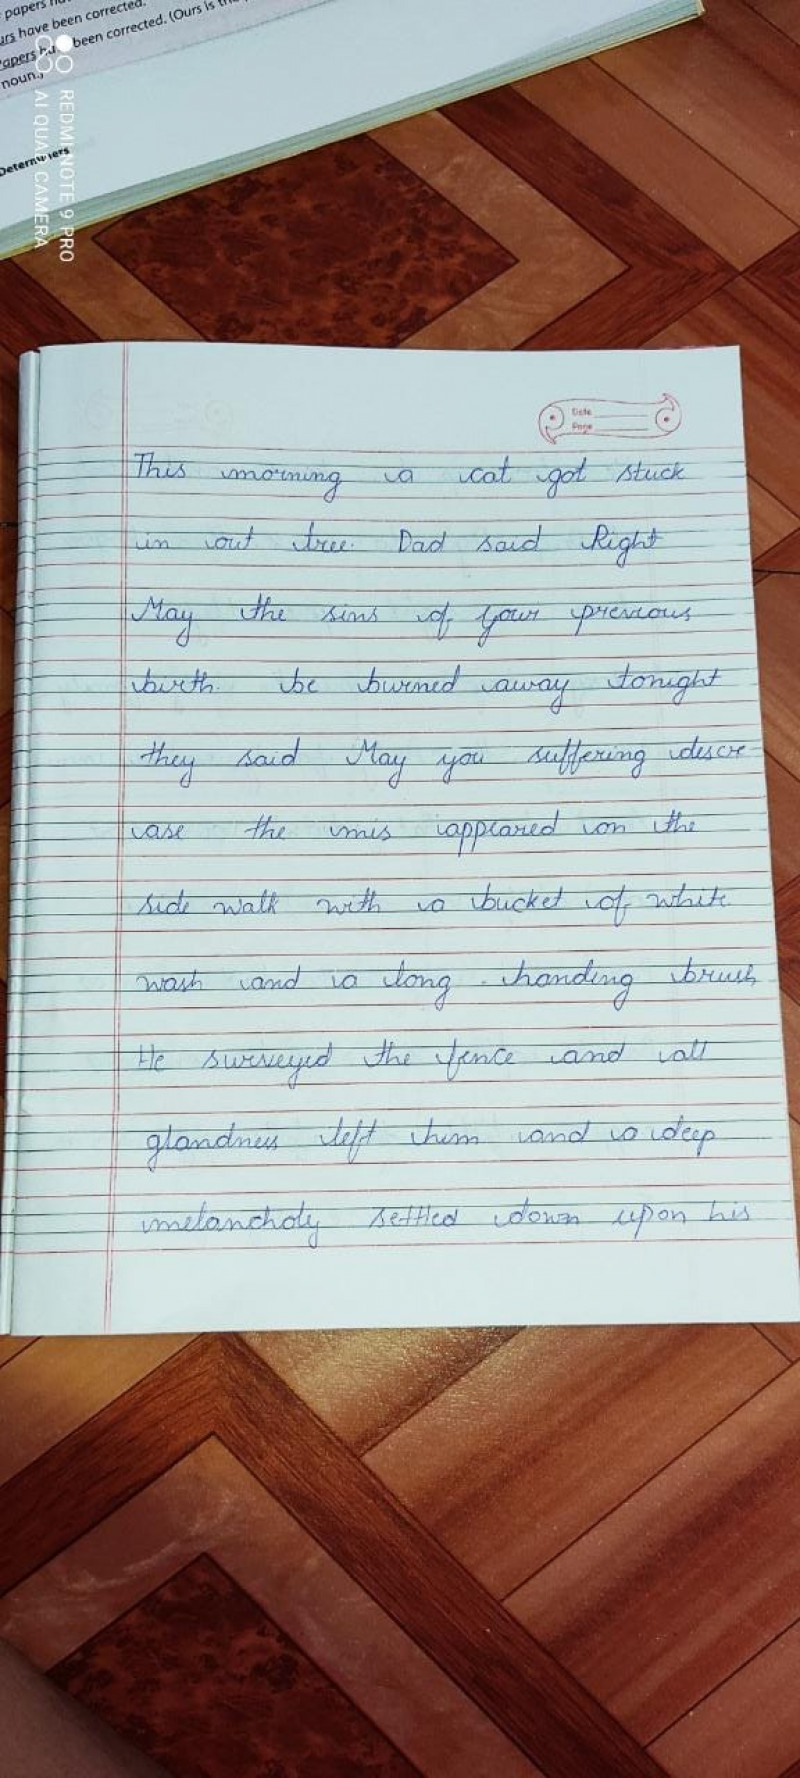 papers
urs have been corrected.
papers been corrected. (Ours is the
noun.)
Determiners
REDMI NOTE 9 PRO
AI QUAD CAMERA
Date
Page
This morning a cat got stuck
in out tree. Dad said Right
May the sins of your previous
birth. be burned away tonight
they said May you suffering descre-
ase the imis appeared on the
side walk with a bucket of white
wash and a long - handing brush
He surveyed the fence and all
glandness left him and a deep
melancholy settled down upon his